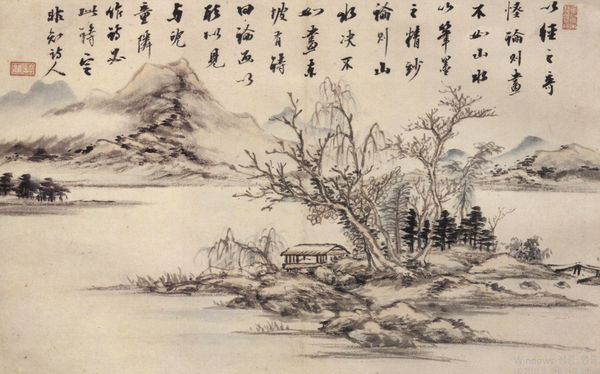 以徑之奇
怪論則畫
不如山水
以筆墨
之精妙
論則山
水決不
如畫東
坡有詩
曰論画以
形似見
与児
童隣
作詩必
此詩定
非知詩人
Windows